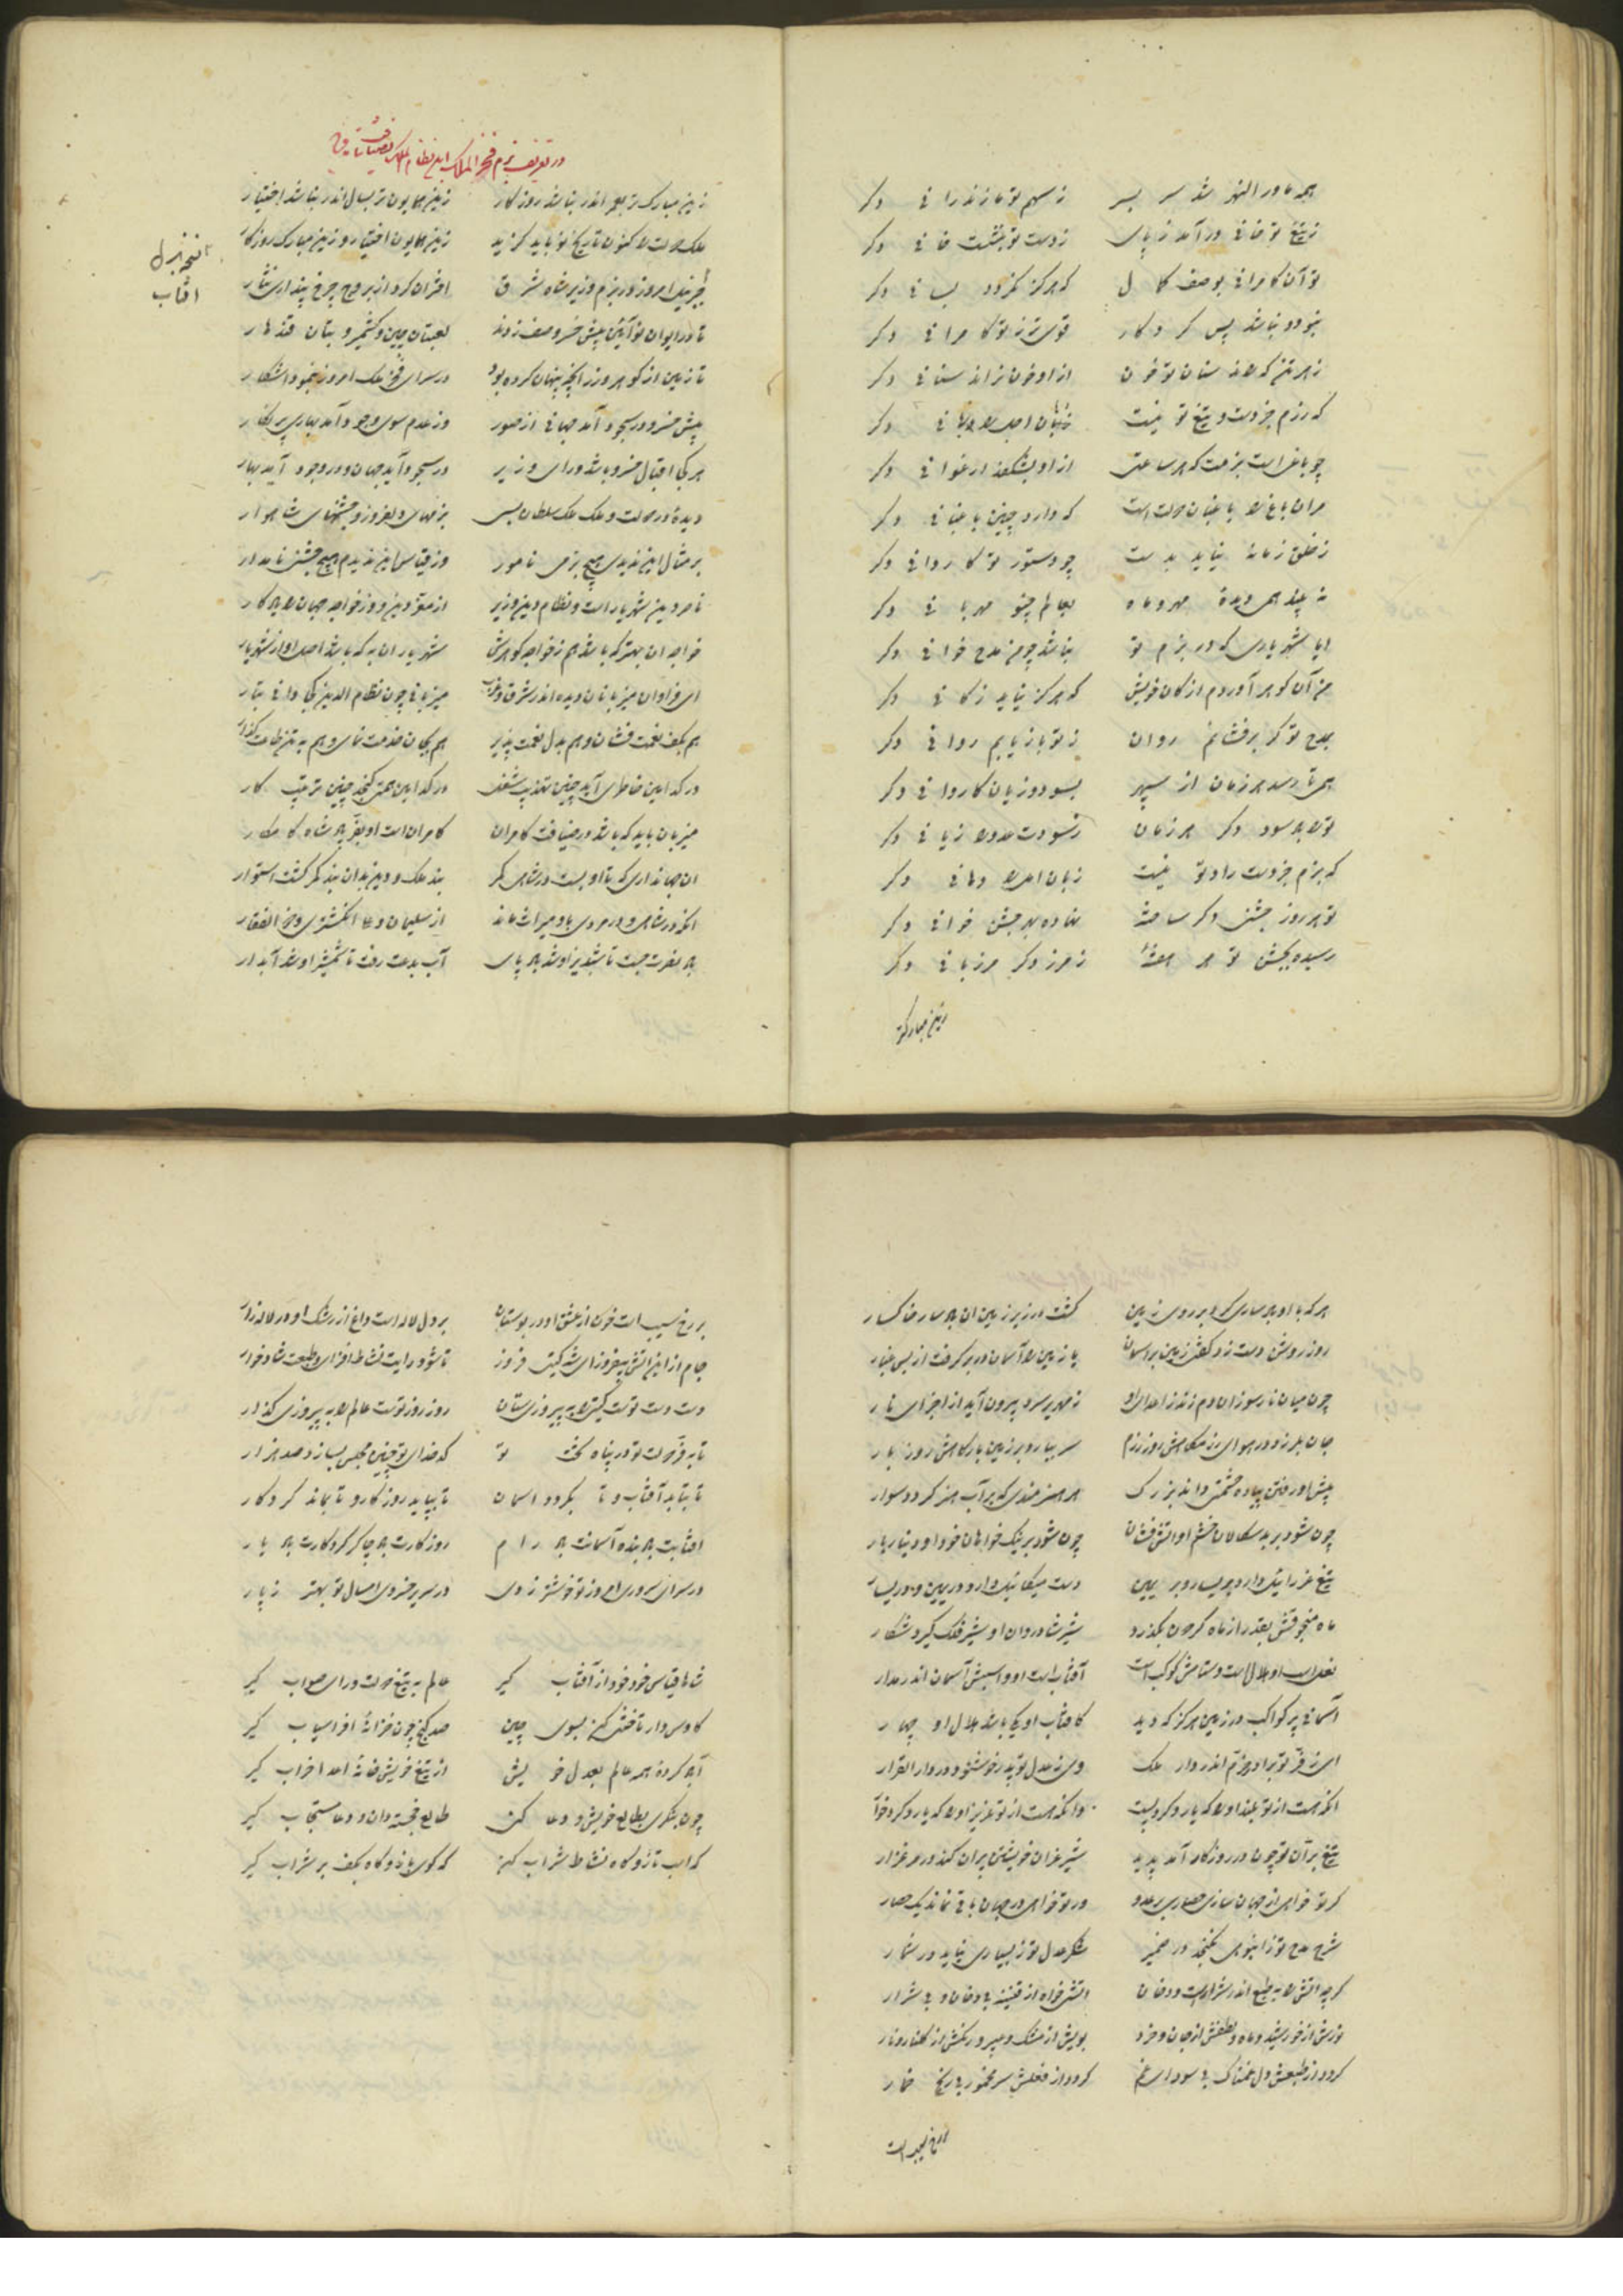 همه ماورالنهر شد سر بسر ز سهم تو مازندرانی دکر
ز تیغ تو خانی درآمد ز پای ز دست تو بنشست خانی دکر
تو آن کامرانی بوصف کمال که هرکز نکردد بسانی دکر
نبود و نباشد پس کردکار قوی‌تر ز تو کامرانی دکر
ز هر تن که راند سنان تو خون از او خون نراند سنانی دکر
که رزم جز دست و تیغ تو نیست دکر
چو باغ است بزمت که هر ساعتی از او بشکفد ارغوانی دکر
مر آن باغ را باغبان دولت است که دارد چنین باغبانی دکر
ز خلق زمانه نیاید بدست چو دستور تو کاردانی دکر
نه بیند همی دیده مهر و ماه بعالم چنو مهربانی دکر
ایا شهریاری که در بزم تو نباشد چو من مدح خوانی دکر
من آن کوهر آوردم از کان خویش که هرکز نیاید ز کانی دکر
بمدح تو کر برفشانم روان ز تو بازیابم روانی دکر
همی تا رسد هر زمان از سپهر بسود و زیان کاروانی دکر
تو را باد سود دکر هر زمان ز سودت عدو را زیانی دکر
که بزم جز دست راد تو نیست زبان امل را دهانی دکر
تو هر روز جشنی دکر ساخته نهاده بهر جشن خوانی دکر
رسیده بجشن تو هر هفته ز مرز دکر مرزبانی دکر
زین مبارکتر
در تعریف بزم فخر الملک ابن نظام الملک
زین مبارک‌تر بعمر اندر نباشد روزکار زین همایون‌تر بسال اندر نباشد اختیار
ملک و دولت را کنون تاریخ نو باید کزید زین همایون اختیار و زین مبارک روزکار
چرخ نیلی امروز در بزم وزیر شاه شرق اختران کرد از بروج چرخ پنداری نثار
تا در ایوان نو آئین پیش خسرو صف زدند لعبتان چین و کشمیر و بتان قندهار
تا زمین از کوهر و زر آنچه پنهان کرده بود در سرای فخر ملک امروز بنمود آشکار
پیش خسرو در سجود آمد جهانی از صور وز عدم سوی وجود آمد بهاری پرنکار
هر کجا اقبال خسرو باشد و رای وزیر در سجود آید جهان و در وجود آید بهار
دیده در دولت و ملک ملک سلطان بسی بزمهای دلفروز و جشنهای شاهوار
بر مثال این ندیدی هیچ بزمی نامور وز قیاس این ندیدم هیچ جشنی نامدار
ناصر دین شهریار است و نظام دین وزیر از معز دین و از خواجه جهان را یادکار
خواجه آن بهتر که باشد هم ز خواجه کوهرش شهریار آن به که باشد اصل او از شهریار
ای فراوان میزبانان دیده اندر شرق و غرب میزبانی چون نظام الدین کجا دانی بیار
هم بکف نعمت فشان و هم بدل نعمت پذیر هم بجان خدمت نمای و هم به تن طاعت کذار
در کدامین خاطر آید چنین تهذیب شغل در کدامین همت کنجد چنین ترتیب کار
میزبان باید که باشد در ضیافت کامران کامران است او بفر پادشاه کامکار
آن جهانداری که تا او بست در شاهی کمر بند ملک و دین بدان بند کمر کشت استوار
آنکه در شاهی و در مردی باو میراث ماند از سلیمان و علی انکشتری و ذوالفقار
پای نصرت جست تا شبدیز او شد باد پای آب بدعت رفت تا شمشیر او شد آبدار
آفتاب
هر که با او پادساری کرد بر روی زمین کشت در زیر زمین آن بادسار خاکسار
روز روشن دست زد کفتی زمین بر آسمان یا زمین را آسمان در بر کرفت از بس غبار
چون میان نار سوزان دم زند ز اعدای او زمهریر سرد بیرون آید از اجزای نار
جان بلرزد در هوای رزمکاهش روز رزم سر ببارد بر زمین بارکاهش روز بار
پیش او رفتن پیاده حشمتی داند بزرک هر هنرمندی که بر آب هنر کردد سوار
چون شود بر بدسکالان خشم او آتش فشان چون شود بر نیک خواهان جود او دینار بار
تیغ عزرائیل دارد چو یسار و بر یمین دست میکائیل دارد در یمین و در یسار
ماه منجوقش بقدر از ماه کردون بکذرد شیر شادروان او شیر فلک کیرد شکار
نعل اسب او هلال است و ستامش کوکب است آفتاب است او و اسبش آسمان اندر مدار
آسمانی پر کواکب در زمین هرکز که دید کافتاب او یکی باشد هلال او چهار
ای ز فر تو برادر خرم اندر دار ملک وی ز عدل تو پدر خوشنود در دار القرار
آنکه هست از تو بلند او را که یارد کرد پست وآنکه هست از تو عزیز او را که یارد کرد خوار
تیغ بران تو چون در روزکار آمد پدید شیر غران خویشتن پران کند در مرغزار
کر تو خواهی از جهان سازی حصاری بر عدو ور تو خواهی در جهان باقی نماند یک حصار
شرح مدح تو ز انبوهی نکنجد در ضمیر شکر عدل تو ز بسیاری نیاید در شمار
کرچه آتش را به طبع اندر شرار است و دخان آتشی خواه از قنینه بی دخان و بی شرار
نورش از خورشید و ماه و لطفش از جان و خرد بویش از مشک و عبیر و رنکش از کلنار و نار
کردد از طبعش دل غمناک بی سودای غم کردد از فعلش سر مخمور بی رنج خمار
بر رخ سیب است
بر رخ سیب است خون از عشق او در بوستان بر دل لاله است داغ از رشک او در لاله زار
جام از این آتش بیفروز ای شه کیتی فروز تا شود رایت نشاط افزای و طبعت شادخوار
دست دست توست کیتی را به پیروزی ستان روز روز توست عالم را به پیروزی کذار
تا به فر دولت تو در پناه بخت تو کدخدای تو چنین مجلس بسازد صد هزار
تا بتابد آفتاب و تا بکردد آسمان تا بپاید روزکار و تا بماند کردکار
آفتابت باد بنده آسمانت باد رام روزکارت باد چاکر کردکارت باد یار
در سرای سروری امروز تو خوشتر ز دی در سریر خسروی امسال تو بهتر ز پار
شاها قیاس خود از آفتاب کیر عالم به تیغ دولت و رای صواب کیر
کاوس وار تاختنی کن بسوی چین صد کنج چون خزانه افراسیاب کیر
آباد کرده همه عالم بعدل خویش از تیغ خویش خانه اعدا خراب کیر
چون بنکری بطالع خویش و دعا کنی طالع خجسته دان و دعا مستجاب کیر
که اسب تاز و کاه نشاط شراب کن که کوی باز و کاه بکف بر شراب کیر